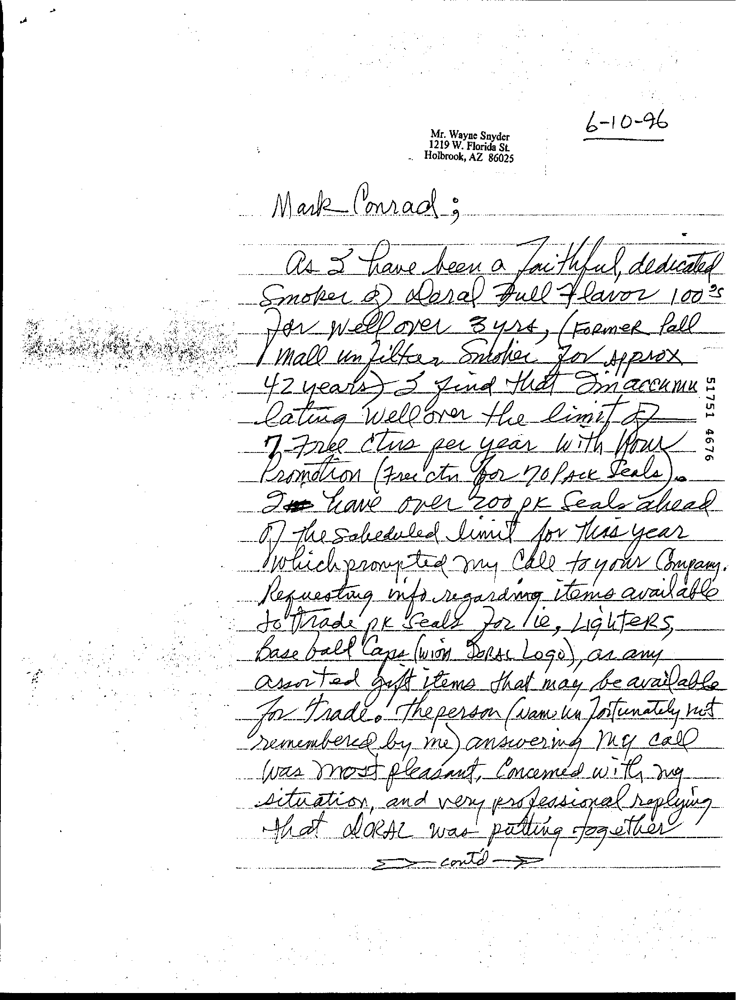 6-10-96
Mr. Wayne Snyder
1219 W. Florida St.
Holbrook, AZ 86025
Mark Conrad;
As I have been a faithful, dedicated
Smoker of Doral Full Flavor 100's
for well over 3 yrs, (Former Pall
Mall unfilter Smoker for approx
42 years) I find that I'm accumu
lating well over the limit of
7 Free ctns per year with your
Promotion (Free ctn for 70 Pack Seals).
I have over 200 pk Seals ahead
of the scheduled limit for this year
which prompted my Call to your Company.
Requesting info regarding items available
to trade pk Seals for lie, Lighters,
Base ball Caps (with Doral Logo), or any
assorted gift items that may be available
for trade. The person (name unfortunately not
remembered by me) answering my call
was most pleasant, Concerned with my
situation, and very professional replying
that DORAL was putting together
cont'd
51751 4676